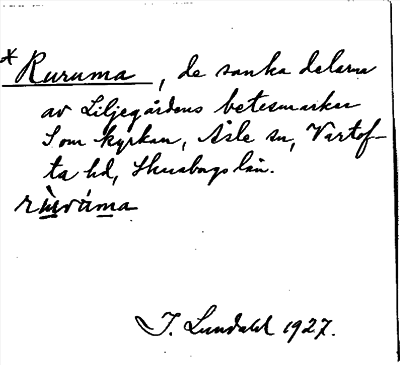 * Ruruma, de sanka delarna
av Liljegårdens betesmarker
Som kyrkan, Åsle sn, Vartof-
ta hd, Skaraborgs län.
I. Lundahl 1927.